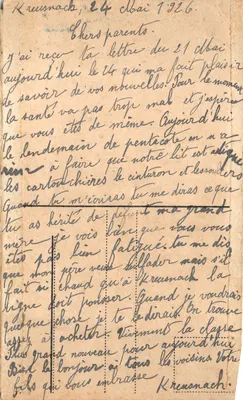 Kreusnach, 24 Mai 1926.
Chers parents.
J'ai reçu ta lettre du 21 Mai
aujourd'hui le 24 qui ma fait plaisir
de savoir de vos nouvelles. Pour le moment
la santé va pas trop mal et j'espère
que vous êtes de même. Aujourd'hui
le lendemain de pentecote on n'a
rien à faire que notre lit est
les cartouchières le cinturon et
Quand tu m'écriras tu me diras ce que
tu as hérité de ma grand
mère je vois bien que vous vous
êtes pas bien fatigué tu me dis
que mon père veux mais s'il
fait si chaud qu'à Kreusnach la
vigne doit pousser. Quand je voudrais
quelque chose je te le dirais. On trouve
assez à acheter. Vivement la classe
Plus grand nouveau pour aujourd'hui
Bien le bonjour à tous les voisins Votre
fils qui vous embrasse
Kreusnach.